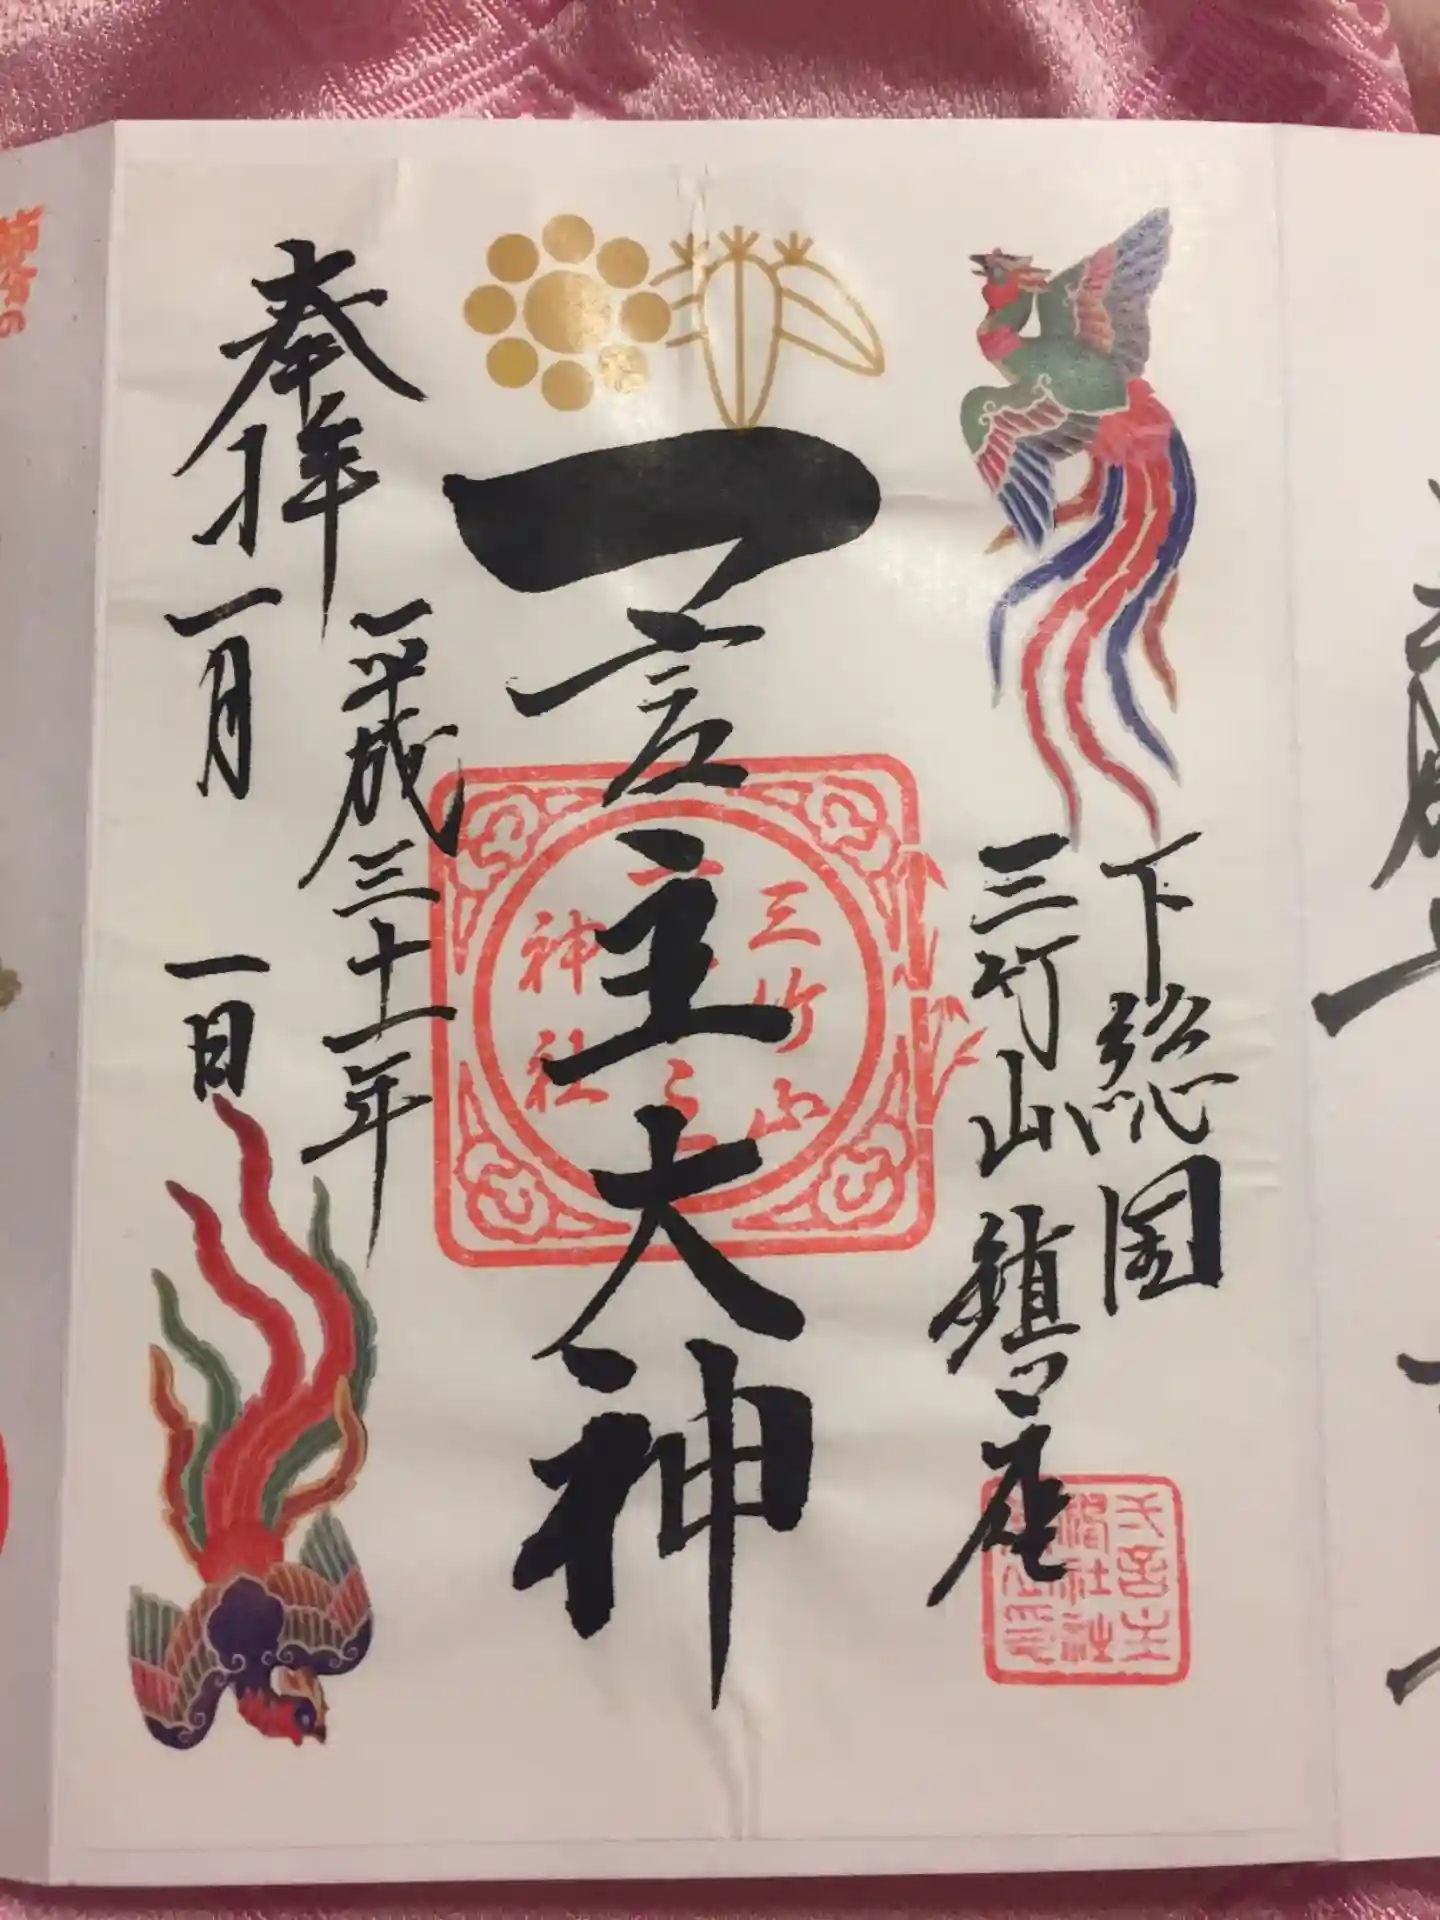 下総国
三竹山鎮座
一言主大神
奉拝
平成三十一年
一月一日
三竹山
神社